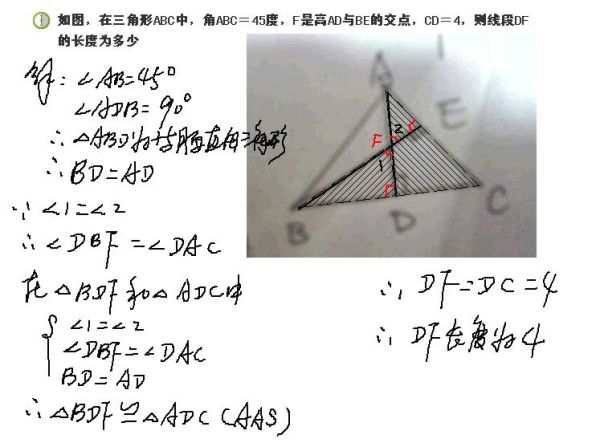 ① 如图，在三角形ABC中，角ABC＝45度，F是高AD与BE的交点，CD＝4，则线段DF
的长度为多少
解：∠AB=45°
∠ADB=90°
∴△ABD为等腰直角三角形
∴BD=AD
∵∠1=∠2
∴∠DBF=∠DAC
在△BDF和△ADC中
∠1=∠2
∠DBF=∠DAC
BD=AD
∴△BDF≌△ADC(AAS)
A
E
2
F
1
B
D
C
∴DF=DC=4
∴DF长度为4